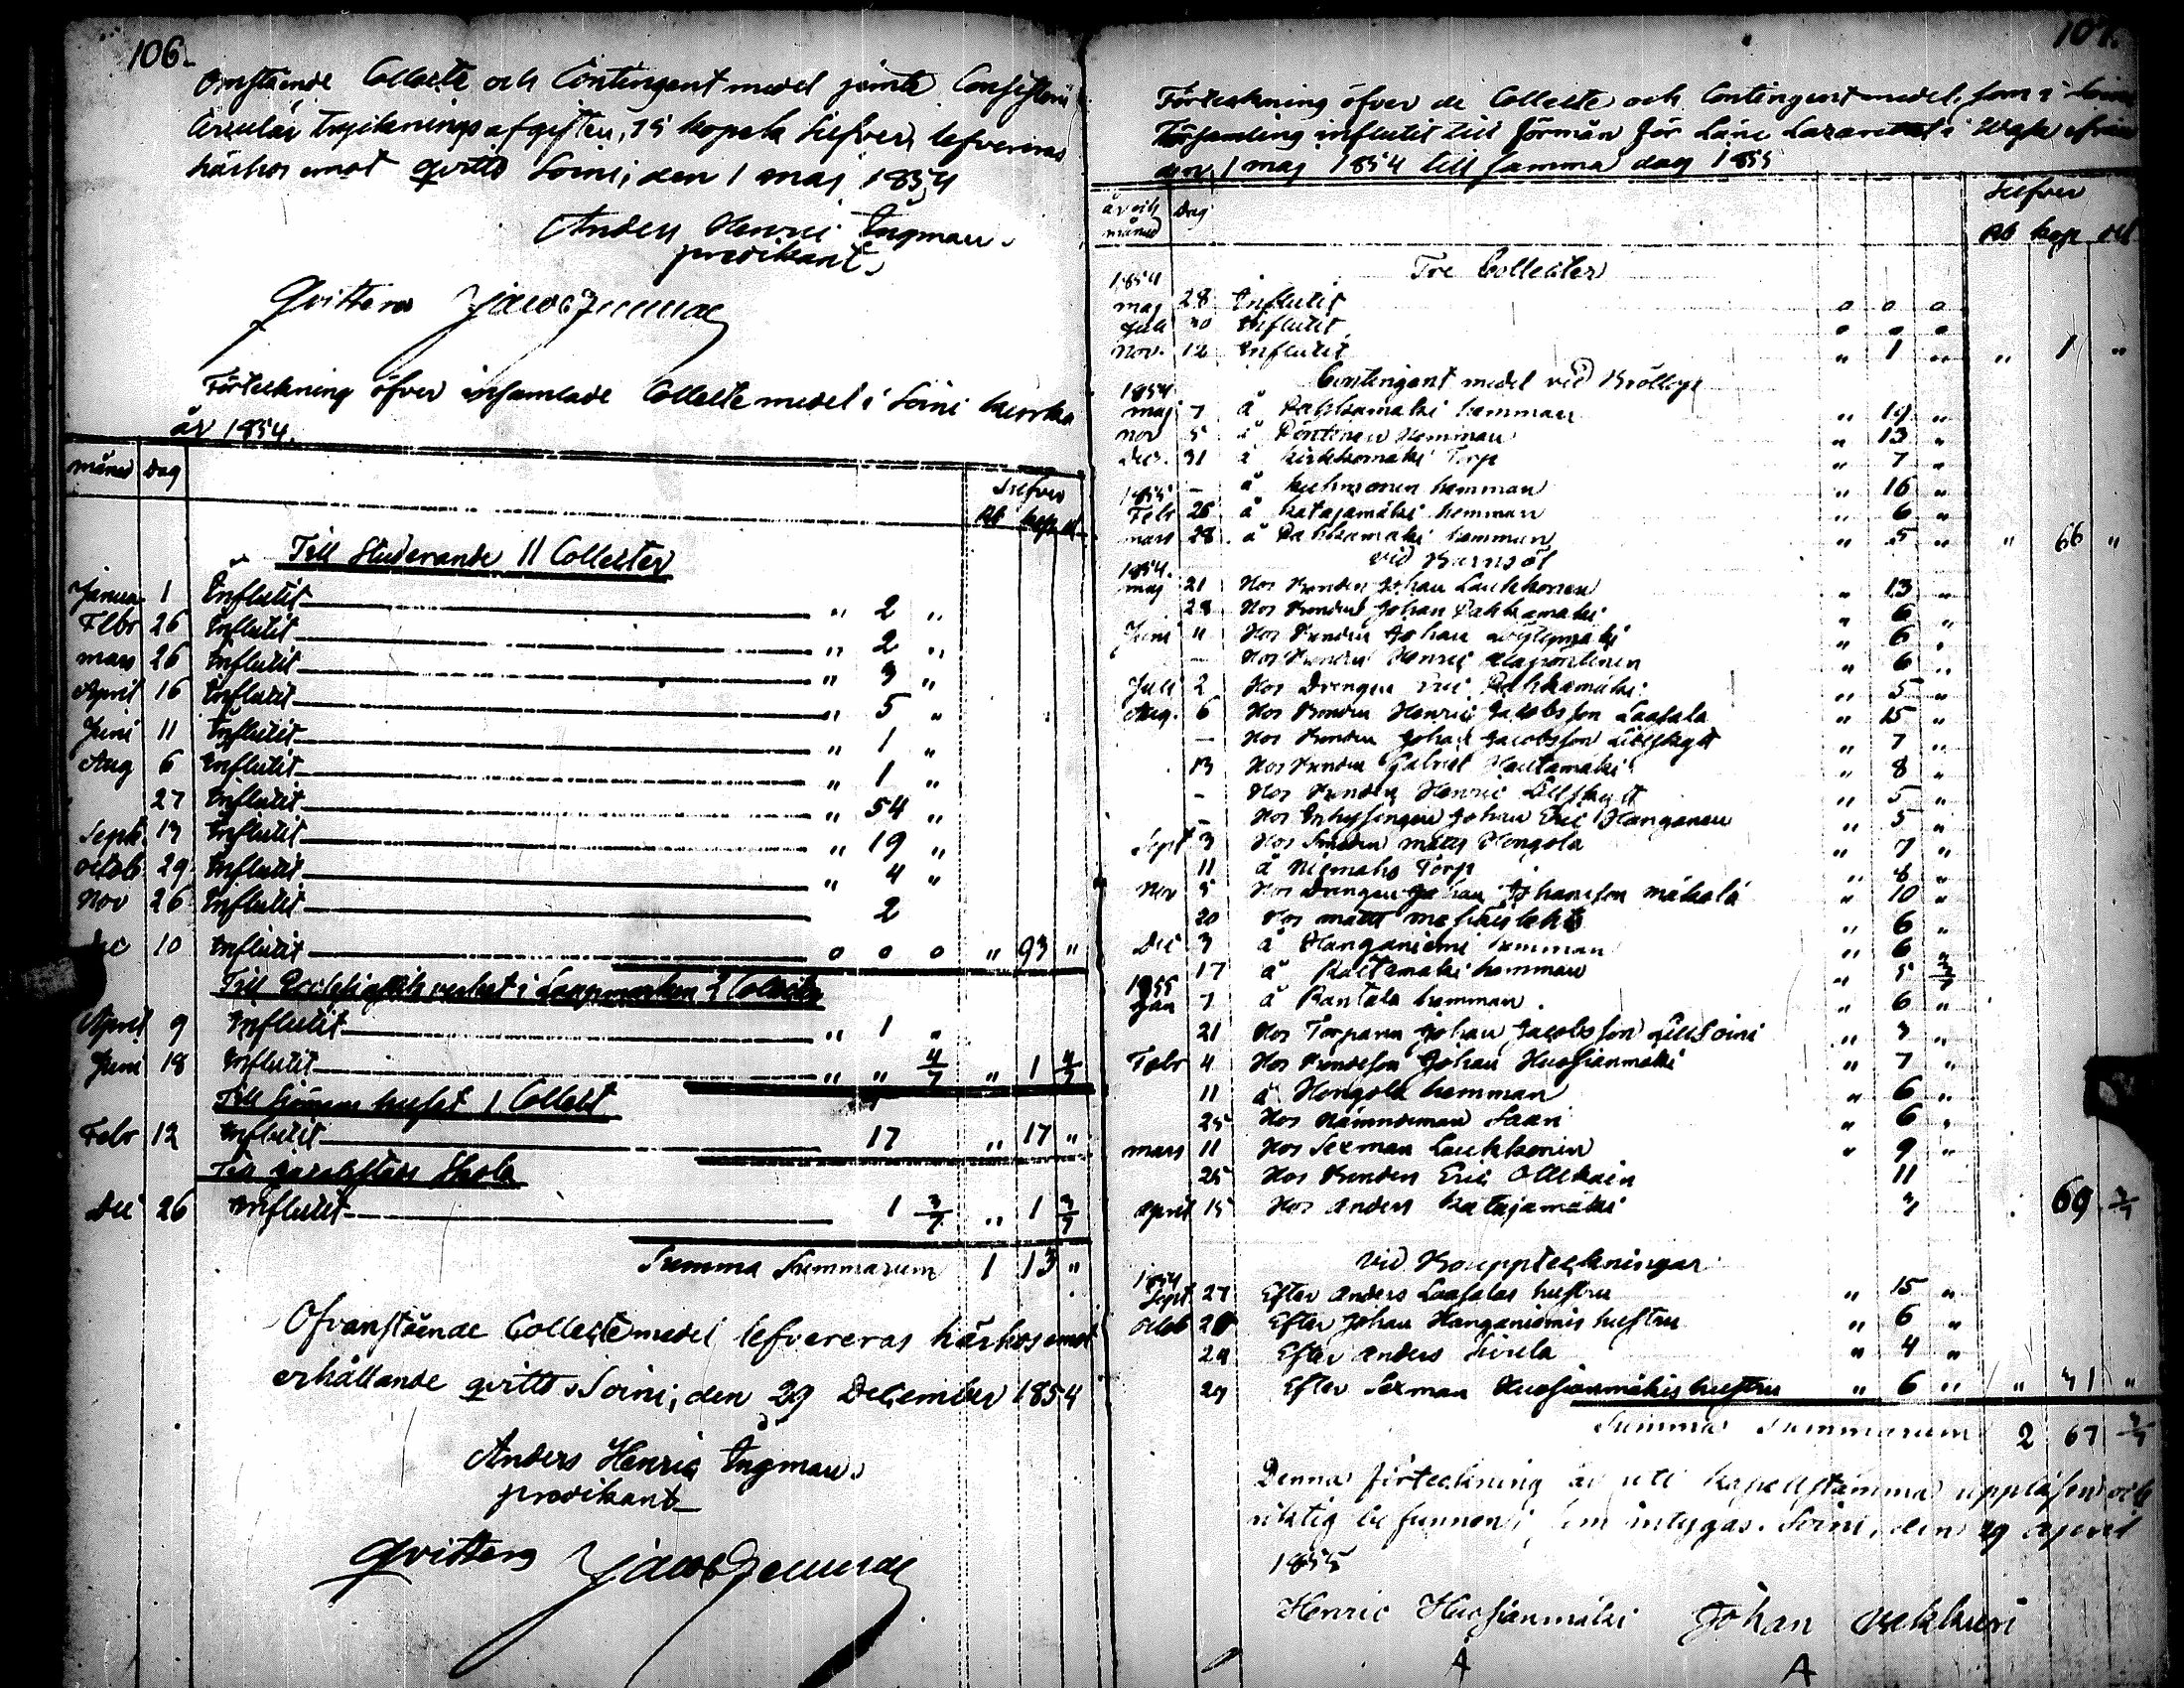 106.
Omstående Collecte och Contingent medel jämte Consistorii
Circulär trycknings afgiften, 15 kopek Silfver, lefvereras
härhos emot qvitto Soini, den 1 maj 1854
Anders Henric Ingman.
predikant.
Qvitteras
Förteckning öfver insamlade Collecte medel i Soini kyrka
år 1854.
månad Dag Silfver
Rb kop
Till Studerande 11 Collecter
Januar 1 Influtit " 2 "
Febr 26 Influtit " 2 "
mars 26 Influtit " 3 "
April 16 Influtit " 5 "
Juni 11 Influtit " 1 "
Aug 6 Influtit " 1 "
27 Influtit " 54 "
Septb. 17 Influtit " 19 "
octob. 29 Influtit " 4 "
Nov 26 Influtit 2
10 Influtit 0 0 0 " 93 "
Till i Lappmarken 2 Collecter
April 9 Influtit " 1 "
Juni 18 Influtit " " 4/7 " 1 4/7
Till huset 1 Collect
Febr 12 Influtit 17 " 17 "
Till Skola
Dec 26 Influtit 1 3/7 " 1 3/7
Summa Summarum 1 13 "
Ofvanstående Collecte medel lefvereras härhos emot
erhållande qvitto. Soini, den 29 December 1854
Anders Henric Ingman.
predikant
Qvitteras
107.
Förteckning öfver de Collecte och Contingent medel, som i Soini
Församling influtit till förmån för Läne Lazarettet i Wasa ifrån
den 1 maj 1854 till samma dag 1855
år och månad Dag Silfver
Rb kop del
Tre Collecter
1854
maj 28 Influtit 0 0 0
Juli 30 Influtit 0 0 0
Nov. 12 Influtit " 1 " " 1 "
Contingent medel vid Bröllop
1854
maj 7 å Pahkamaki hemman " 19 "
nov 5 å Pöntinen Hemman " 13 "
Dec. 31 å kirkkomaki Torp " 7 "
1855 - å kuhmonen hemman " 16 "
Febr 26 å katajamäki hemman " 6 "
mars 28 å Pahkamaki hemman " 5 " " 66 "
vid Barnsöl
1854.
maj 21 Hos Bonden Johan Laukkonen " 13 "
28 Hos Bonden Johan Pahkamaki " 6 "
Juni 11 Hos Bonden Johan " 6 "
- Hos Bonden Henric Alapöntinen " 6 "
Juli 2 Hos Drengen Eric Pahkamäki " 5 "
Aug. 6 Hos Bonden Henric Jacobsson Laasala " 15 "
- Hos Bonden Johan Jacobsson " 7 "
13 Hos Bonden Gabriel Hautamaki " 8 "
- Hos Bonden Henric " 5 "
- Hos Inhysingen Johan Eric Hanganen " 5 "
Sept 3 Hos Smeden matts Hongola " 7 "
11 å Torp " 8 "
Nov 5 Hos Drengen Johan Johansson mäkelä " 10 "
20 Hos matts " 6 "
Dec 3 å Hanganiemi hemman " 6 "
17 å Raitamaki hemman " 5 3/7
1855
Jan 7 å Rantala hemman " 6 "
21 Hos Torparn Johan Jacobsson Lillsoini " 3 "
Febr 4 Hos Bondeson Johan Huosianmäki " 7 "
11 å Hongola hemman " 6 "
25 Hos Nämndeman Saari " 6 "
mars 11 Hos Sexman Laukkonen " 9 "
25 Hos Bonden Eric Ollikain 11
April 15 Hos Anders Katajamäki 3 69 3/7
vid Bouppteckningar
1854
Sept 27 Efter Anders Laasalas hustru " 15 "
Octob Efter Johan Hanganiemis hustru " 6 "
29 Efter Anders " 4 "
29 Efter Sexman Huosianmäkis hustru " 6 " " 31 "
Summa Summarum 2 67 3/7
Denna förteckning är uti kapellstämma uppläsen och
riktig befunnen, som intygas. Soini, den 29 April
1855
Henric Huosianmäki Johan